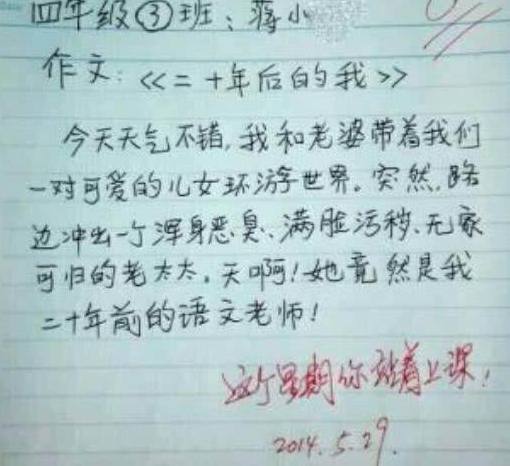 四年级③班：蒋小
作文：<<二十年后的我>>
今天天气不错，我和老婆带着我们
一对可爱的儿女环游世界。突然，路
边冲出一个浑身恶臭、满脸污秽、无家
可归的老太太。天啊！她竟然是我
二十年前的语文老师！
这个星期你站着上课！
2014.5.29.